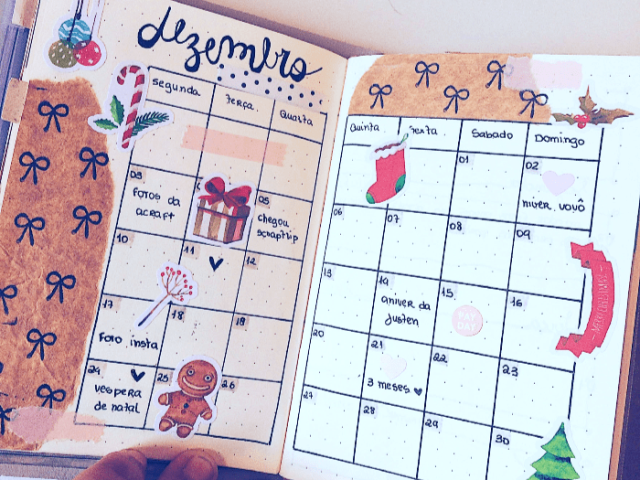 dezembro
segunda
terça
Quarta
Quinta
Sexta
Sabado
Domingo
01
02
niver. vovô
03
fotos da
acraft
05
chegou
scraptrip
06
07
08
09
10
11
12
13
14
anner da
Justen
15
PAY
DAY
16
17
foto insta
18
19
20
21
3 meses
22
23
24
vespera
de natal
25
26
27
28
29
30